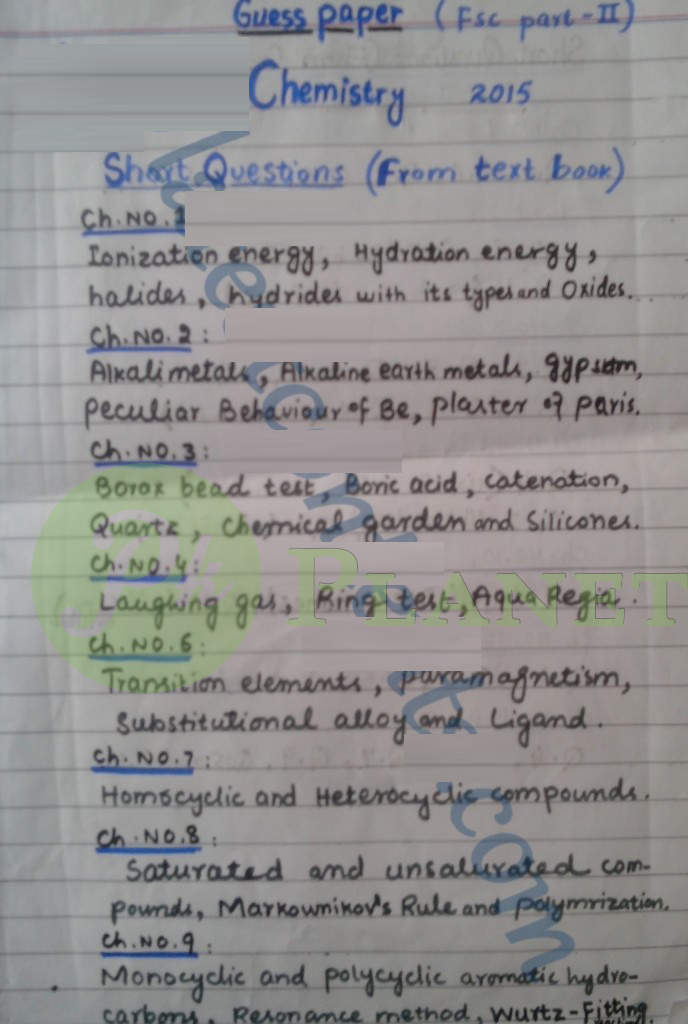 Guess paper (Fsc part-II)
Chemistry 2015
Short Questions (From text book)
Ch.NO.1
Ionization energy, Hydration energy,
halides, hydrides with its types and Oxides.
Ch.NO.2:
Alkali metals, Alkaline earth metals, gypsum,
Peculiar Behaviour of Be, plaster of paris.
Ch.NO.3:
Borax bead test, Boric acid, catenation,
Quartz, chemical garden and Silicones.
Ch.NO.4:
Laughing gas, Ring test, Aqua Regia.
Ch.NO.6:
Transition elements, paramagnetism,
Substitutional alloy and Ligand.
Ch.NO.7:
Homocyclic and Heterocyclic compounds.
Ch.NO.8:
Saturated and unsaturated com-
pounds, Markownikov's Rule and polymrization.
Ch.NO.9:
Monocyclic and polycyclic aromatic hydro-
carbons, Resonance method, Wurtz-Fitting
PLANET
.com